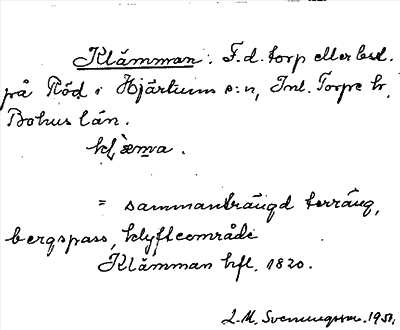 Klämman. F.d. torp eller bst.
på Röd i Hjärtum s:n, Inl. Torpe hr,
Bohus län.
klæ̀m̄a.
= sammanträngd terräng,
bergspass, klyftområde
Klämman hfl. 1820.
L.M. Svenungsson. 1951.